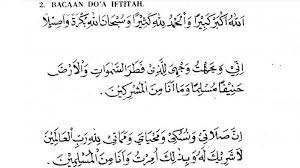 2. BACAAN DO'A IFTITAH.
اَللهُ اَكْبَرُ كَبِيْرًا وَالْحَمْدُ لِلّٰهِ كَثِيْرًا وَسُبْحَانَ اللهِ بُكْرَةً وَاَصِيْلًا
اِنِّى وَجَّهْتُ وَجْهِىَ لِلَّذِىْ فَطَرَ السَّمٰوَاتِ وَالْاَرْضَ
حَنِيْفًا مُسْلِمًا وَمَا اَنَا مِنَ الْمُشْرِكِيْنَ .
اِنَّ صَلَاتِى وَنُسُكِى وَمَحْيَاىَ وَمَمَاتِى لِلّٰهِ رَبِّ الْعَالَمِيْنَ
لَاشَرِيْكَ لَهُ وَبِذٰلِكَ اُمِرْتُ وَاَنَا مِنَ الْمُسْلِمِيْنَ .